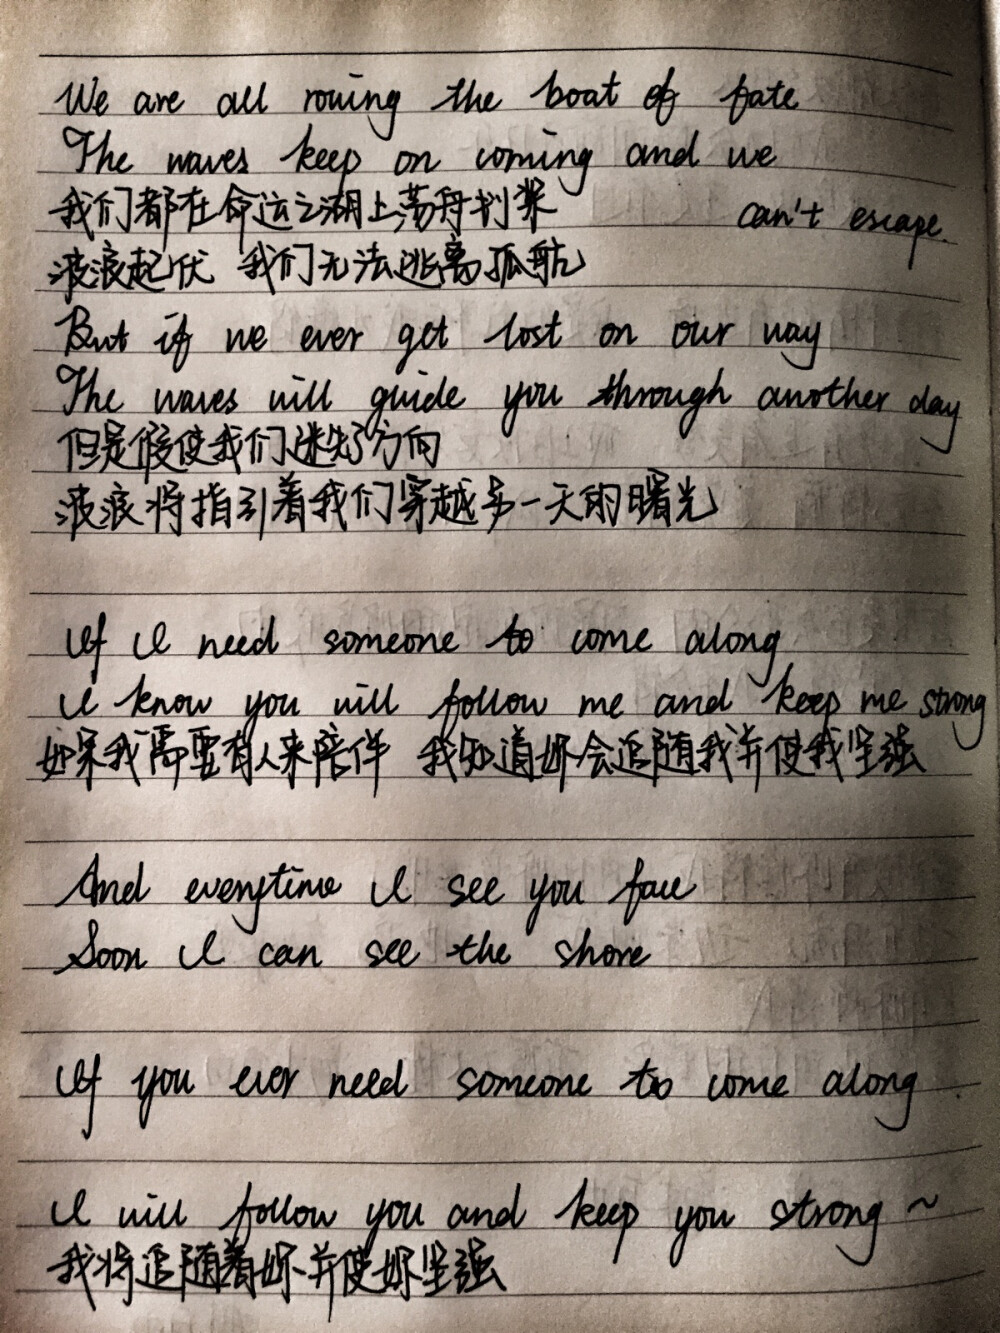 We are all rowing the boat of fate
The waves keep on coming and we
can't escape.
我们都在命运之湖上荡舟划桨
波浪起伏 我们无法逃离孤航
But if we ever get lost on our way
The waves will guide you through another day
但是假使我们迷失了方向
波浪将指引着我们穿越另一天的曙光
If I need someone to come along
I know you will follow me and keep me strong
如果我需要有人来陪伴 我知道妳会追随我并使我坚强
And everytime I see you face
Soon I can see the shore
If you ever need someone to come along
I will follow you and keep you strong ~
我将追随着妳并使妳坚强